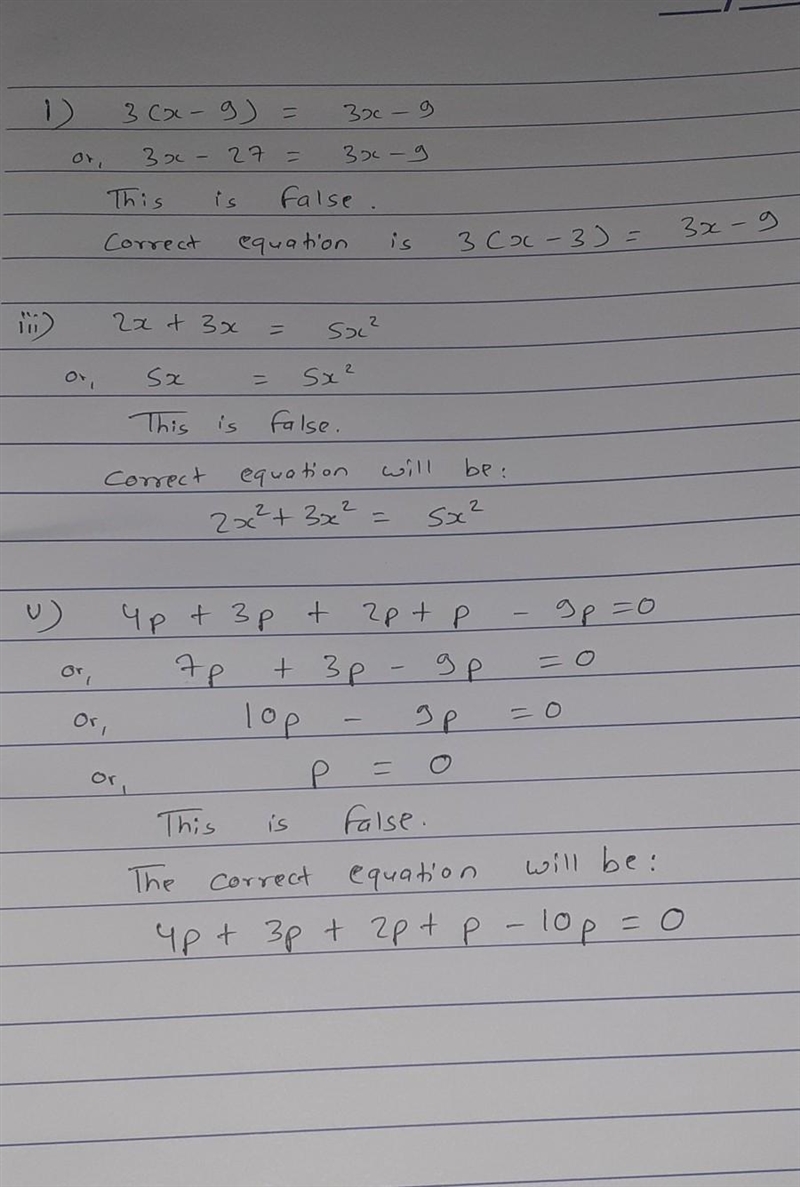 1) 3(x - 9) = 3x - 9
or, 3x - 27 = 3x - 9
This is false.
Correct equation is 3(x - 3) = 3x - 9
iii) 2x + 3x = 5x²
or, 5x = 5x²
This is false.
Correct equation will be:
2x² + 3x² = 5x²
v) 4p + 3p + 2p + p - 9p = 0
or, 7p + 3p - 9p = 0
or, 10p - 9p = 0
or, p = 0
This is false.
The correct equation will be:
4p + 3p + 2p + p - 10p = 0